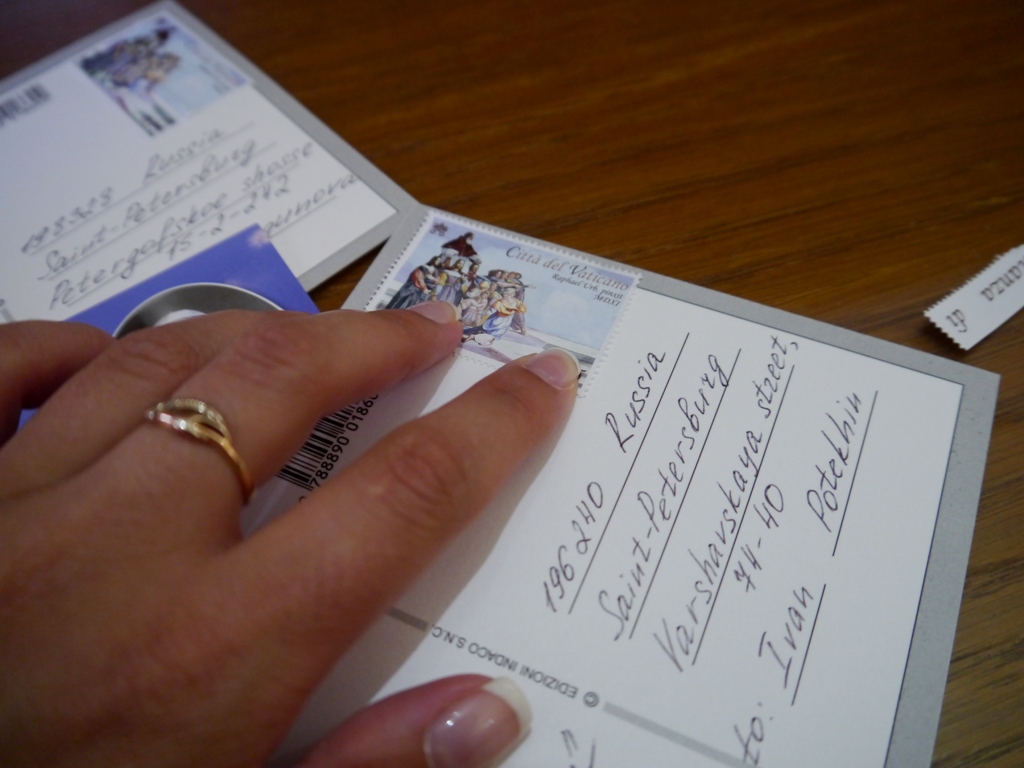 198328 Russia
Saint-Petersburg
Petergofskoe shosse
15-2-242
Città del Vaticano
Raphael Urb. pinxit
MDXI
196240 Russia
Saint-Petersburg
Varshavskaya street,
74-40
to: Ivan Potekhin
788890 0186
© EDIZIONI INDACO S.N.C.
di